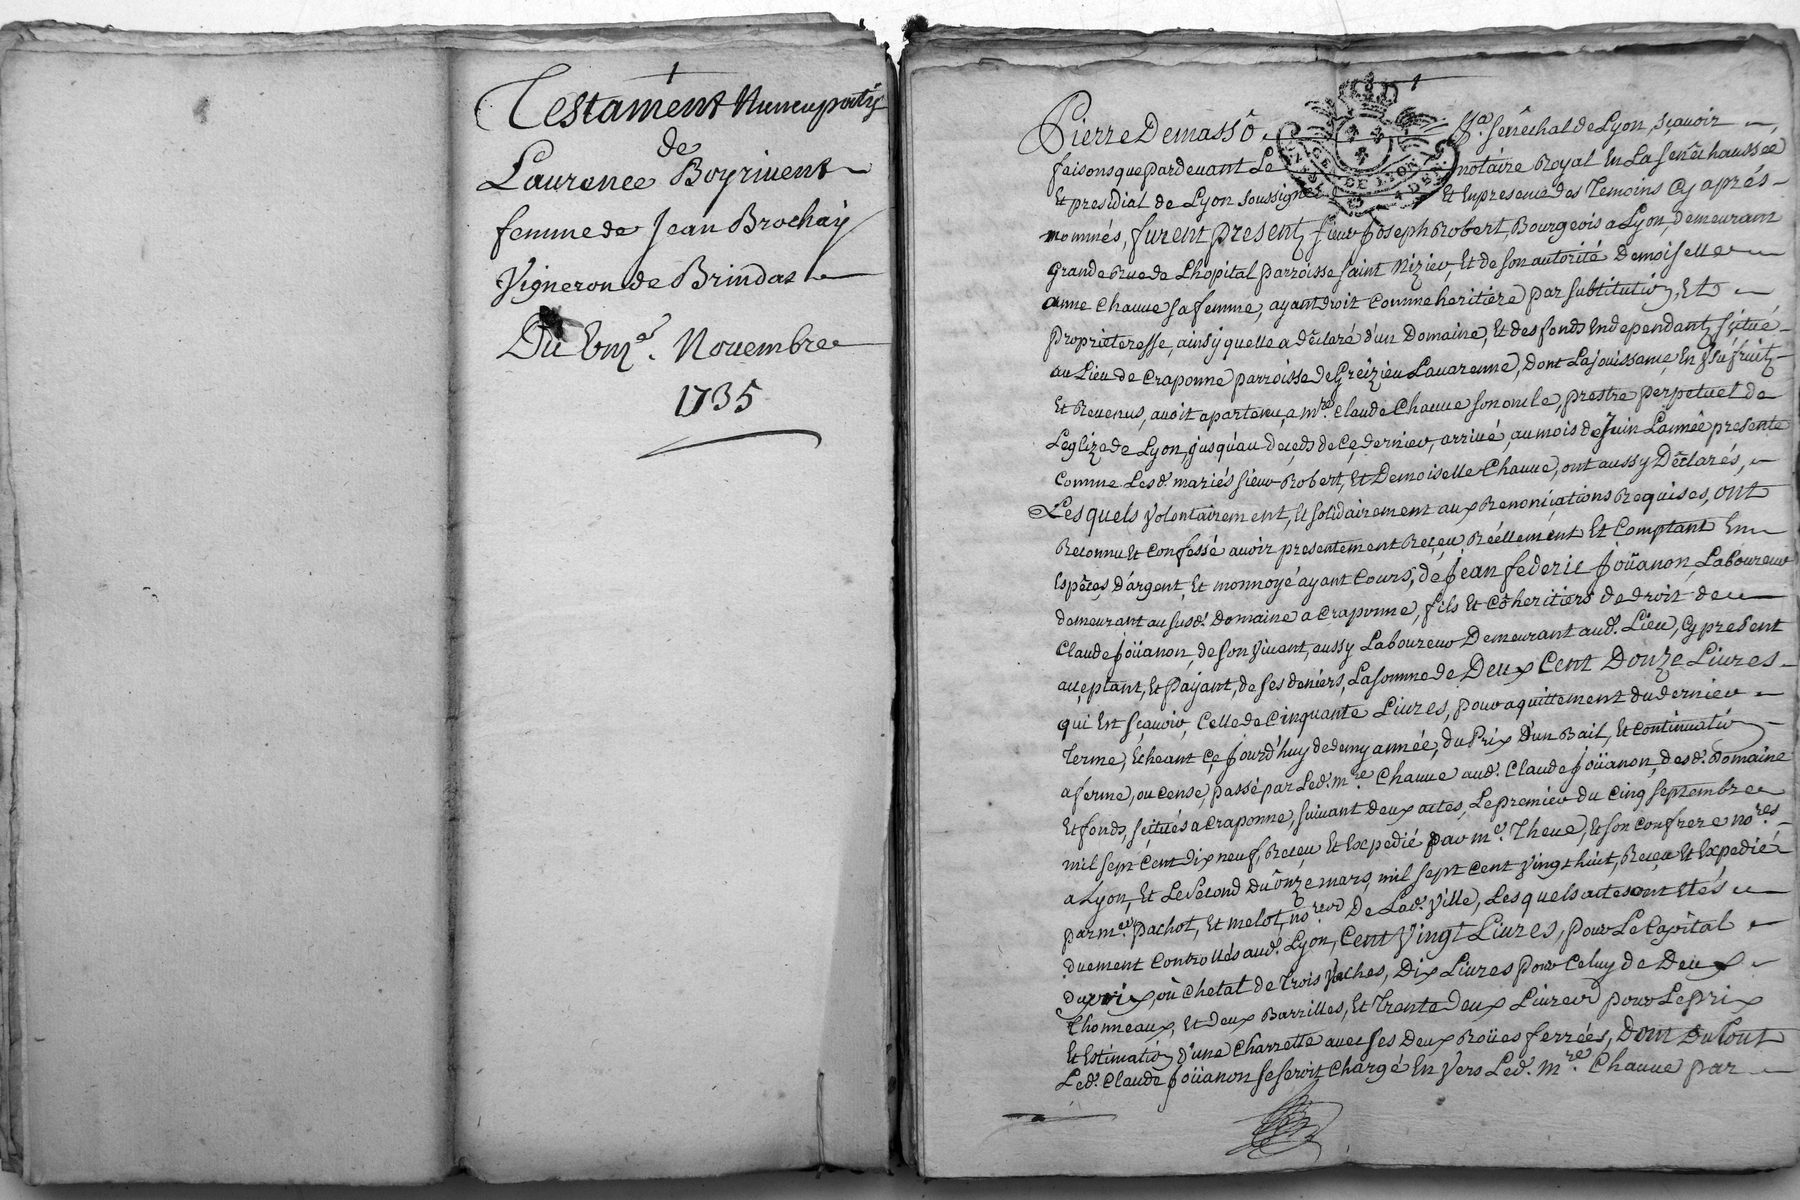 Testament Nuncupatif
de
Laurence Boyrivent
femme de Jean Brochay
Vigneron de Brindas
Du Vme. Novembre
1735
Pierre Demasso Sal. Senêchal de Lyon, sçavoir
faisons que pardevant Le notaire Royal En La senêchaussée
Et presidial de Lyon soussigné Et En presence des Temoins Cy aprés
nommés, furent present sieur Joseph Robert, Bourgeois a Lyon, demeurant
grande Rue de L'hopital parroisse saint Nizier, Et de son autorité Demoiselle
anne Chauve sa femme, ayant droit comme heritiere par substitution, Et
proprieteresse, ainsy quelle a déclaré d'un Domaine, Et des fonds Independant, scitué
au Lieu de Craponne parroisse de Greizieu Lavarenne, Dont La jouissance, En usufruit
Et Revenus, avoit apartenu a mre. Claude Chauve son oncle, prestre perpetuel de
L'eglize de Lyon, jusqu'au deçeds de Çe dernier, arrivé, au mois de Juin L'année presente
Comme Lesd. mariés sieur Robert, Et Demoiselle Chauve, ont aussy Déclarés,
Lesquels Volontairement, Et solidairement aux Renonciations Requises, ont
Reconnu Et Confessé avoir presentement Reçeu Réellement Et Comptant En
Espéces d'argent, Et monnoye ayant Cours, de Jean federic Joüanon, Laboureur
demeurant au susd. Domaine a Craponne, fils Et Coheritiers de droit de
Claude Joüanon, de son Vivant, aussy Laboureur Demeurant aud. Lieu, Cy present
aceptant, Et Payant, de ses deniers, La somme de Deux Cent Douze Livres
qui Est sçavoir, Celle de Cinquante Livres, pour aquittement du dernier
Terme, Echeant Çe Jourd'huy de demy année, du Prix D'un Bail, Et Continuation
a ferme, ou Cense, passé par Led. mre Chauve aud. Claude Joüanon, desd. Domaine
Et fonds, sçitués a Craponne, suivant deux actes, Le premier du Cinq septembre
mil sept Cent dix neuf, Reçeu Et Expedié par me. Theve, Et son Confrere nores
a Lyon, Et Le second du onze mars, mil sept cent Vingt huit, Reçeu Et Expedié
par mes. pachot, Et melot, nores De Lad. Ville, Lesquels actes ont Etés
duement Controllés aud. Lyon, Cent Vingt Livres, pour Le Capital
du prix, où Chetal de Trois Vaches, Dix Livres pour Celuy de Deux
Thonneaux, Et deux Barrilles, Et Trente deux Livres pour Le prix
Et Estimation d'une Charrette avec ses Deux Roües ferrées, Dont Du tout
Led. Claude Joüanon se seroit Chargé En Vers Led. mre. Chauve par